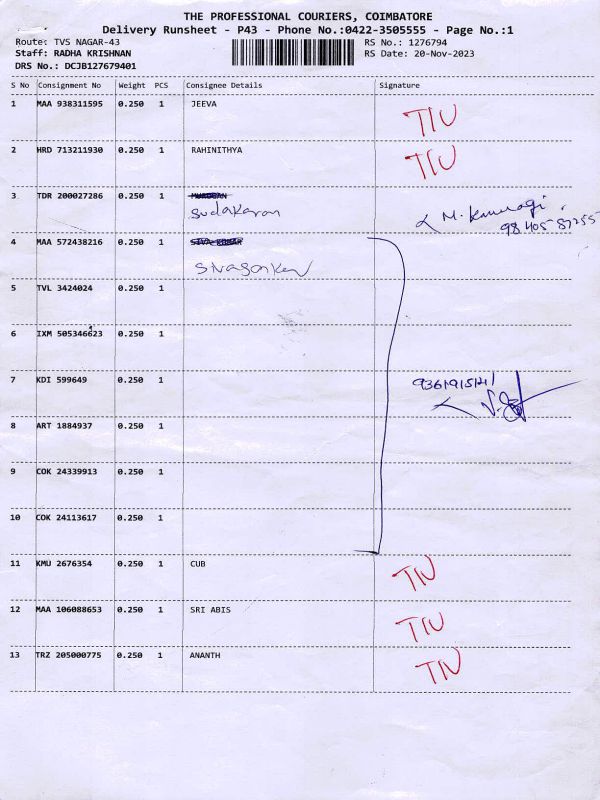 THE PROFESSIONAL COURIERS, COIMBATORE
Delivery Runsheet - P43 - Phone No.:0422-3505555 - Page No.:1
Route: TVS NAGAR-43 RS No.: 1276794
Staff: RADHA KRISHNAN RS Date: 20-Nov-2023
DRS No.: DCJB127679401
S No Consignment No Weight PCS Consignee Details Signature
1 MAA 938311595 0.250 1 JEEVA TIU
2 HRD 713211930 0.250 1 RAHINITHYA TIU
3 TDR 200027286 0.250 1
Sudakaran M.
4 MAA 572438216 0.250 1 SIVA KUMAR
5 TVL 3424024 0.250 1
6 IXM 505346623 0.250 1
7 KDI 599649 0.250 1
8 ART 1884937 0.250 1
9 COK 24339913 0.250 1
10 COK 24113617 0.250 1
11 KMU 2676354 0.250 1 CUB TIU
12 MAA 106088653 0.250 1 SRI ABIS TIU
13 TRZ 205000775 0.250 1 ANANTH TIU